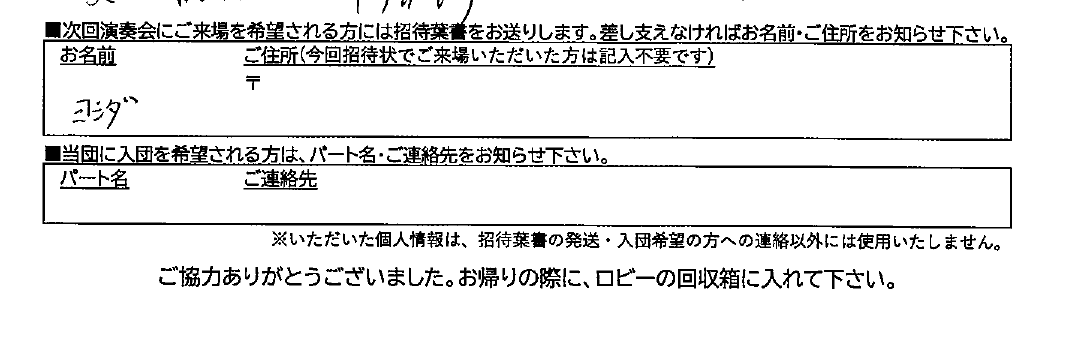 ■次回演奏会にご来場を希望される方には招待葉書をお送りします。差し支えなければお名前・ご住所をお知らせ下さい。
お名前 ご住所(今回招待状でご来場いただいた方は記入不要です)
〒
ヨシダ
■当団に入団を希望される方は、パート名・ご連絡先をお知らせ下さい。
パート名 ご連絡先
※いただいた個人情報は、招待葉書の発送・入団希望の方への連絡以外には使用いたしません。
ご協力ありがとうございました。お帰りの際に、ロビーの回収箱に入れて下さい。